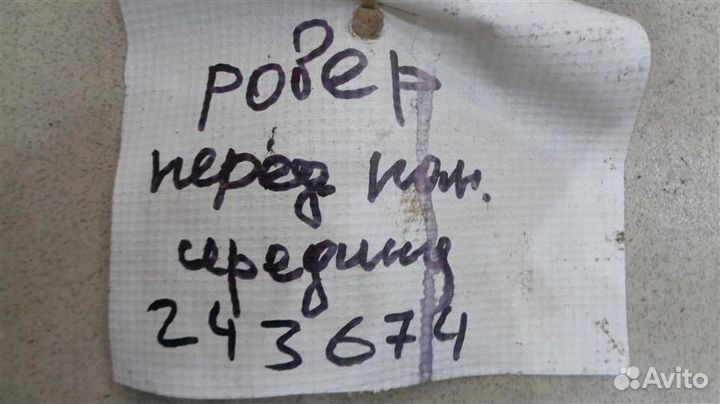 ровер
перед кон.
середину
243674
Avito